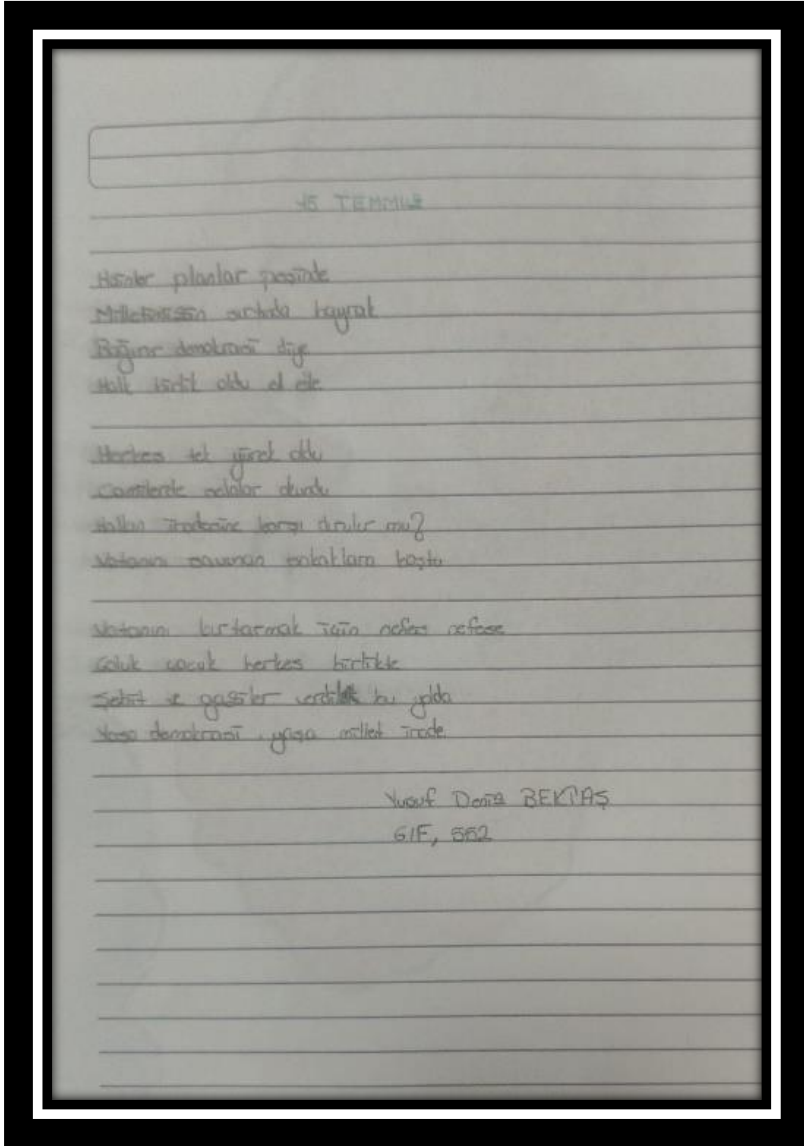 15 TEMMUZ
Hainler planlar peşinde
Milletimizin sırtında bayrak
Bağırır demokrasi diye
Halk birlik oldu el ele
Herkes tek yürek oldu
Camilerde selalar okundu
Halkın iradesine karşı durulur mu?
Vatanını savunan sokaklara koştu
Vatanını kurtarmak için nefes nefese
Çoluk çocuk herkes birlikte
Şehit ve gaziler verdik bu yolda
Yaşa demokrasi, yaşa millet irade
Yusuf Deniz BEKTAŞ
6/F, 552